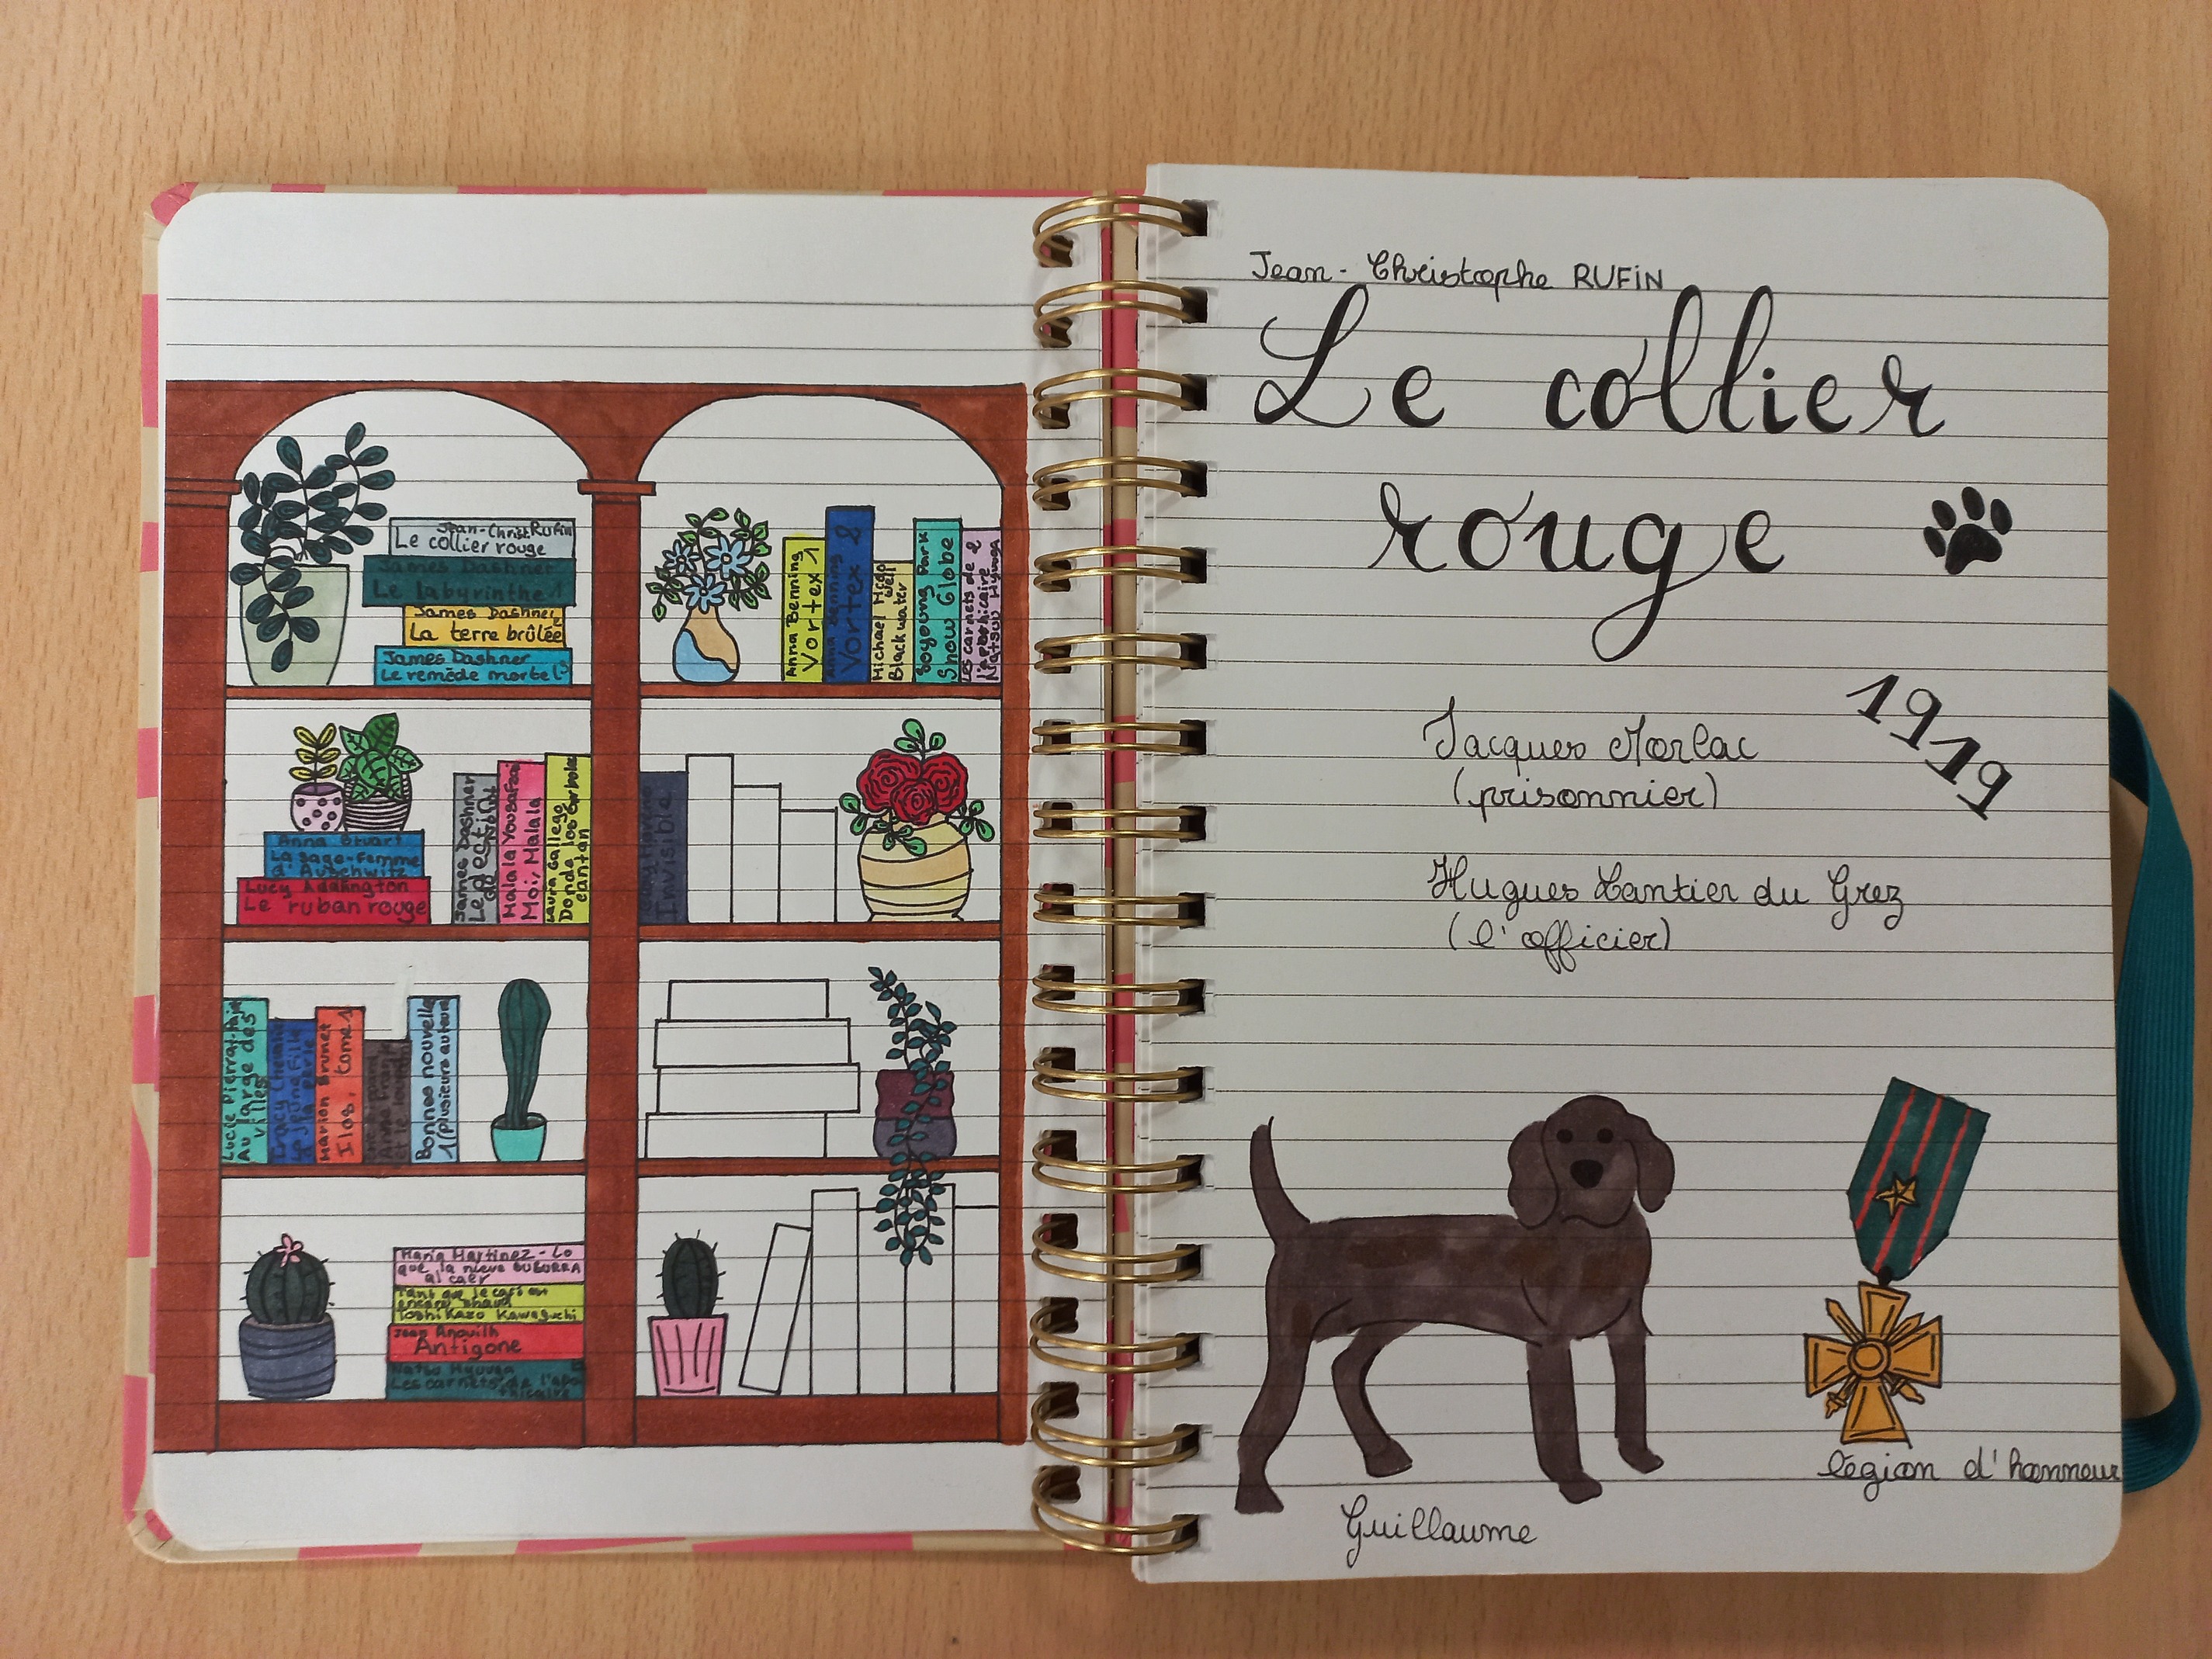 Jean-Christ Rufin
Le collier rouge
James Dashner
Le labyrinthe 1
James Dashner
La terre brûlée 2
James Dashner
Le remède mortel 3
Anna Benning
Vortex 1
Anna Benning
Vortex 2
Michael McDo
well
Blackwater
Soyoung Park
Snow Globe
Les carnets de
l'apothicaire 2
Natsu Hyuuga
Anna Stuart
La sage-femme
d'Auschwitz
Lucy Adlington
Le ruban rouge
James Dashner
Malala Yousafzai
Moi, Malala
Laura Gallego
Donde los árboles
cantan
Invisible
Lucie Pierrat-Paj
Au large des
villes
Tracy Cheval
La jeune fille
à la perle
Marion Brunet
Ilos, tome 1
Anne Frank
Bonnes nouvelle
1 (plusieurs auteurs
María Martínez - Lo
que la nieve SUSURRA
al caer
Tant que le café est
encore chaud
Toshikazo Kawaguchi
Jean Anouilh
Antigone
Natsu Hyuuga
Les carnets de l'apo
thicaire
Jean-Christophe RUFIN
Le collier
rouge
1919
Jacques Morlac
(prisonnier)
Hugues Lantier du Grez
(l'officier)
légion d'honneur
Guillaume